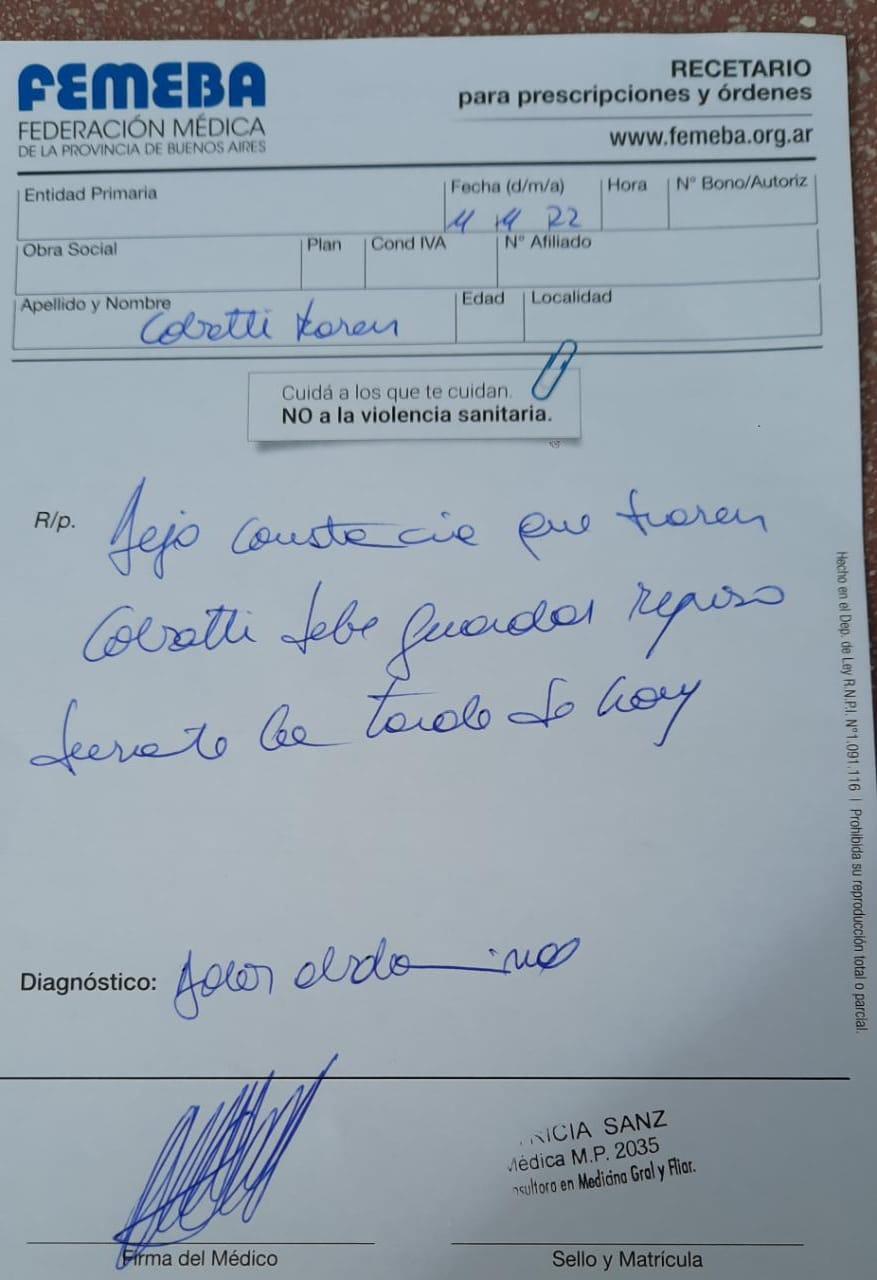 FEMEBA
FEDERACIÓN MÉDICA
DE LA PROVINCIA DE BUENOS AIRES
RECETARIO
para prescripciones y órdenes
www.femeba.org.ar
Entidad Primaria
Fecha (d/m/a)
Hora
N° Bono/Autoriz
22
Obra Social
Plan
Cond IVA
N° Afiliado
Apellido y Nombre
Edad
Localidad
Karen
Cuidá a los que te cuidan.
NO a la violencia sanitaria.
R/p.
Dejo constancia que Karen
debe guardar reposo
durante la tarde de hoy
Diagnóstico: dolor abdominal
RICIA SANZ
Médica M.P. 2035
nsultora en Medicina Gral y Fliar.
Firma del Médico
Sello y Matrícula
Hecho en el Dep. de Ley R.N.P.I. N°1.091.116 | Prohibida su reproducción total o parcial.